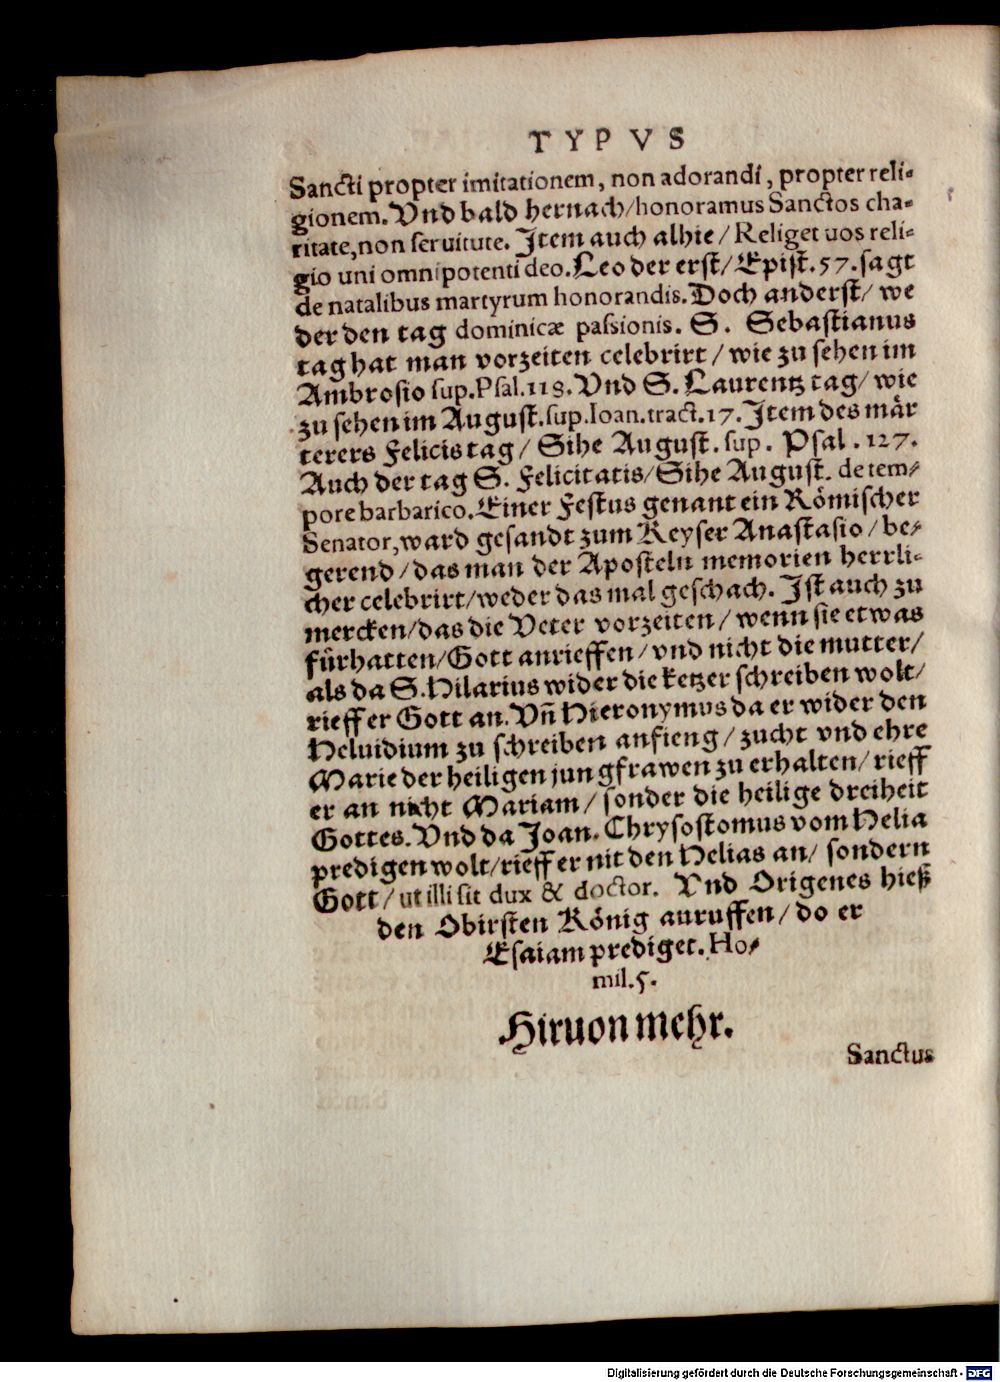 TYPVS
Sancti propter imitationem, non adorandi, propter reli-
gionem. Vnd bald hernach/honoramus Sanctos cha-
ritate,non seruitute. Item auch alhie/ Religet uos reli-
gio uni omnipotenti deo. Leo der erst/ Epist.57. sagt
de natalibus martyrum honorandis. Doch anderst/ we
der den tag dominicæ passionis. S. Sebastianus
tag hat man vorzeiten celebrirt/ wie zu sehen im
Ambrosio sup.Psal.118. Vnd S. Laurentz tag/ wie
zu sehen im August.sup.Ioan.tract.17. Item des mär
terers Felicis tag/ Sihe August. sup. Psal. 127.
Auch der tag S. Felicitatis/ Sihe August. de tem-
pore barbarico. Einer Festus genant ein Römischer
Senator, ward gesandt zum Keyser Anastasio/ be-
gerend/ das man der Aposteln memorien herrli-
cher celebrirt/weder das mal geschach. Ist auch zu
mercken/das die Veter vorzeiten/ wenn sie etwas
fürhatten/Gott anrieffen/ vnd nicht die mutter/
als da S.Hilarius wider die ketzer schreiben wolt/
rieff er Gott an. Vñ Hieronymus da er wider den
Heluidium zu schreiben anfieng/ zucht vnd ehre
Marie der heiligen jungfrawen zu erhalten/ rieff
er an nicht Mariam/ sonder die heilige dreiheit
Gottes. Vnd da Joan. Chrysostomus vom Helia
predigen wolt/rieff er nit den Helias an/ sondern
Gott/ ut illi sit dux & doctor. Vnd Origenes hieß
den Obirsten König anruffen/ do er
Esaiam prediget. Ho-
mil.5.
Hiruon mehr.
Sanctus
Digitalisierung gefördert durch die Deutsche Forschungsgemeinschaft - DFG